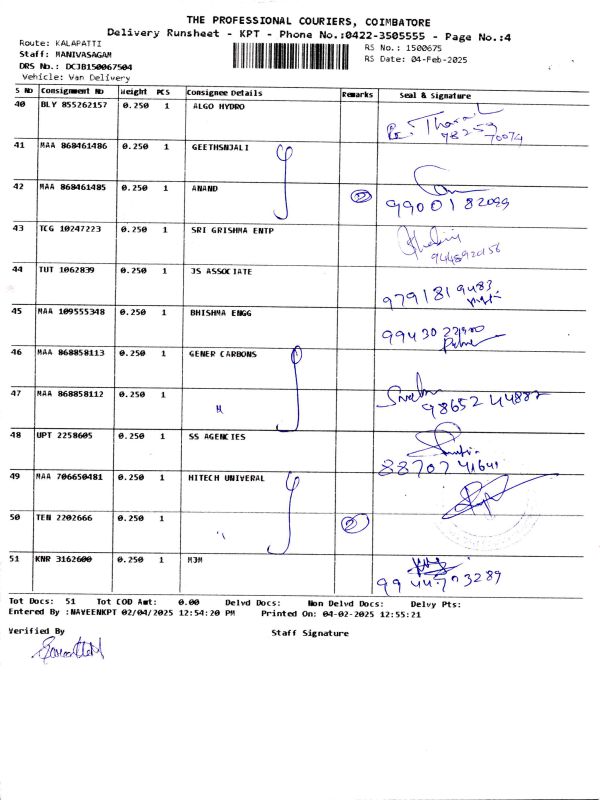 THE PROFESSIONAL COURIERS, COIMBATORE
Delivery Runsheet - KPT - Phone No.:0422-3505555 - Page No.:4
Route: KALAPATTI
Staff: MANIVASAGAM
DRS No.: DCJB150067504
Vehicle: Van Delivery
RS No.: 1500675
RS Date: 04-Feb-2025
S No Consignment No Weight PCS Consignee Details Remarks Seal & Signature
40 BLY 855262157 0.250 1 ALGO HYDRO
41 MAA 868461486 0.250 1 GEETHSNJALI
42 MAA 868461485 0.250 1 ANAND 2 9900182099
43 TCG 10247223 0.250 1 SRI GRISHMA ENTP
44 TUT 1062839 0.250 1 JS ASSOCIATE 9791819483
45 MAA 109555348 0.250 1 BHISHMA ENGG
46 MAA 868858113 0.250 1 GENER CARBONS
47 MAA 868858112 0.250 1 9865244882
48 UPT 2258605 0.250 1 SS AGENCIES
49 MAA 706650481 0.250 1 HITECH UNIVERAL
50 TEN 2202666 0.250 1 2
51 KNR 3162600 0.250 1 M3M 9944703289
Tot Docs: 51 Tot COD Amt: 0.00 Delvd Docs: Non Delvd Docs: Delvy Pts:
Entered By :NAVEENKPT 02/04/2025 12:54:20 PM Printed On: 04-02-2025 12:55:21
Verified By
Staff Signature